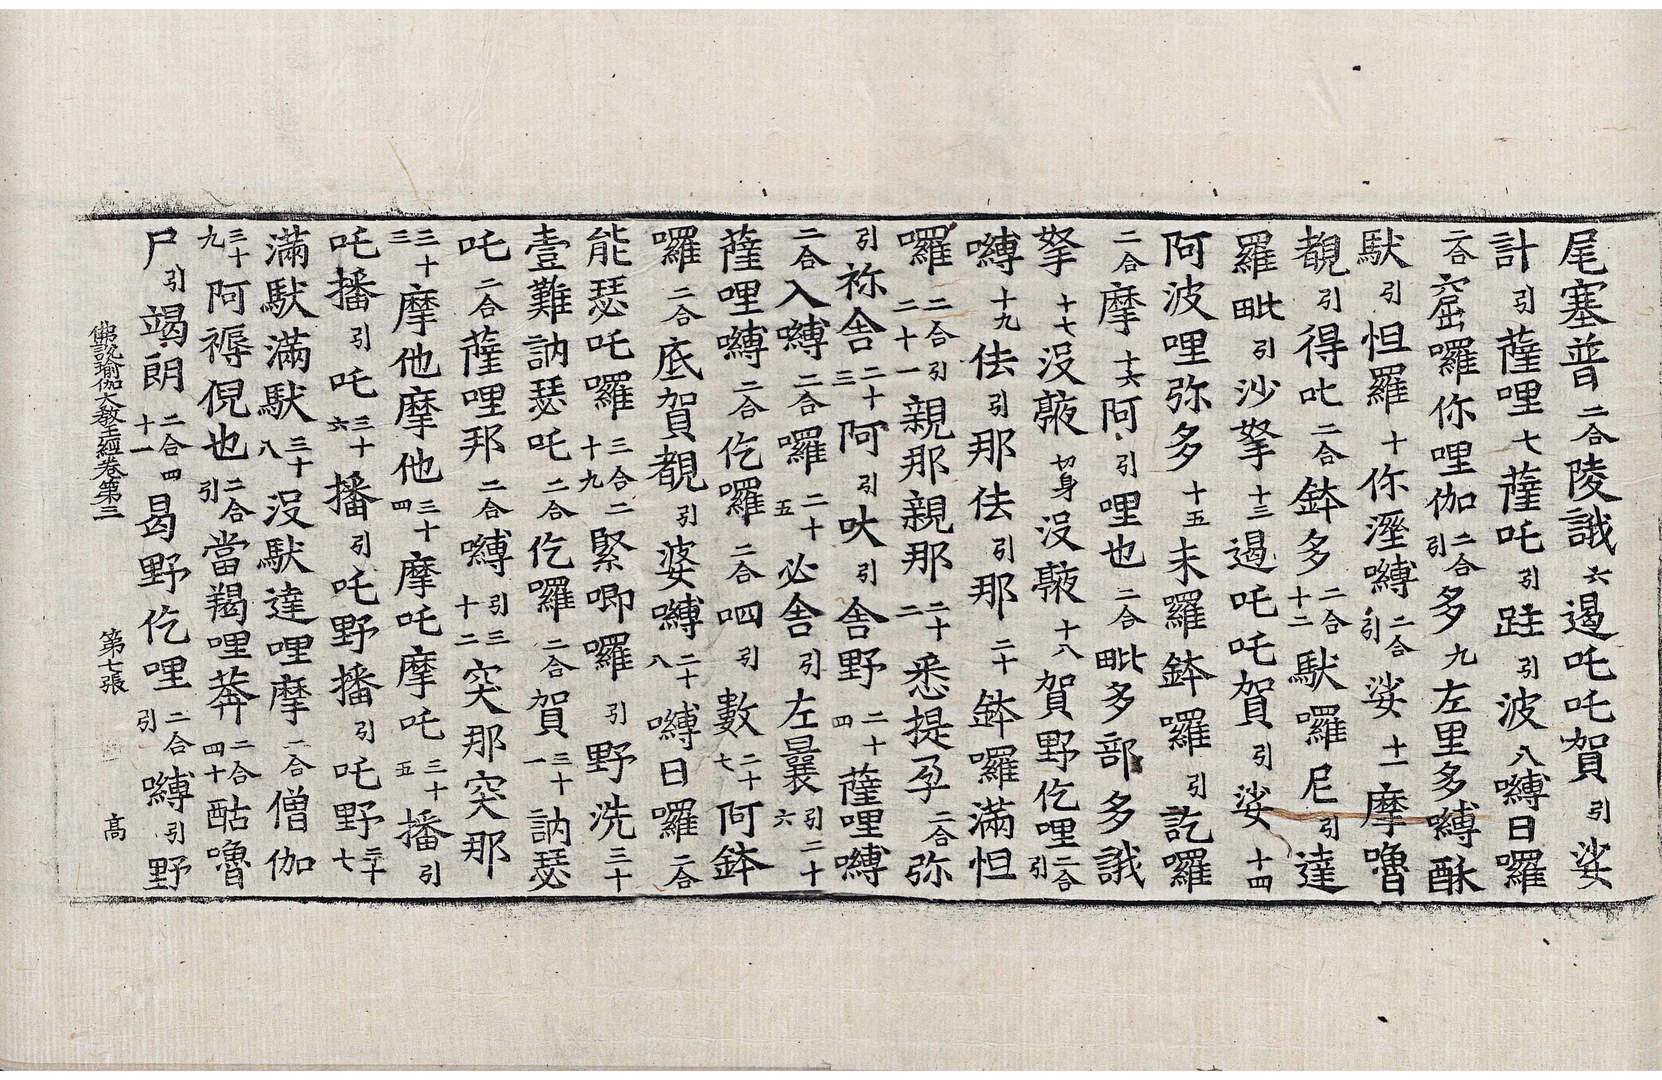 尾塞普二合陵誐六遏吒吒賀引娑
計引薩哩七薩吒引跬引波八嚩日囉
二合窟囉你哩伽二合引多九左里多嚩酥
馱引怛羅十你溼嚩二合引娑十一摩嚕
覩引得叱二合鉢多二合十二馱囉尼引達
羅毗引沙拏十三遏吒吒賀引娑十四
阿波哩弥多十五未羅鉢囉引訖囉
二合摩十六阿引哩也二合毗多部多誐
拏十七沒䫂切身沒䫂十八賀野仡哩二合引
嚩十九佉引那佉引那二十鉢囉滿怛
囉二合引二十一親那親那二十二悉提孕二合弥
引祢舍二十三阿引吠引舍野二十四薩哩嚩
二合入嚩二合囉二十五必舍引左曩引二十六
薩哩嚩二合仡囉二合呬引數二十七阿鉢
囉二合底賀覩引婆嚩二十八嚩日囉二合
能瑟吒囉三合二十九緊唧囉引野洗三十
壹難訥瑟吒二合仡囉二合賀三十一訥瑟
吒二合薩哩邦二合嚩引三十二突那突那
三十三摩他摩他三十四摩吒摩吒三十五播引
吒播引吒三十六播引吒野播引吒野三十七
滿馱滿馱三十八沒馱達哩摩二合僧伽
三十九阿褥倪也二合引當羯哩莾二合四十酤嚕
尸引竭朗二合四十一曷野仡哩二合引嚩引野
佛說瑜伽大教王經卷第三 第七張 高